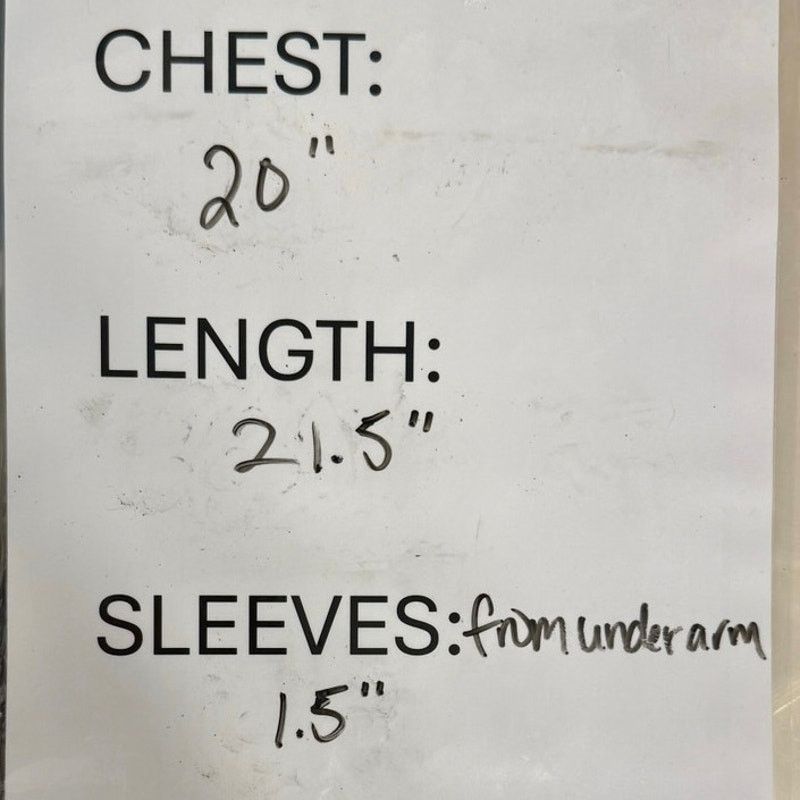 CHEST:
20"
LENGTH:
21.5"
SLEEVES: from under arm
1.5"